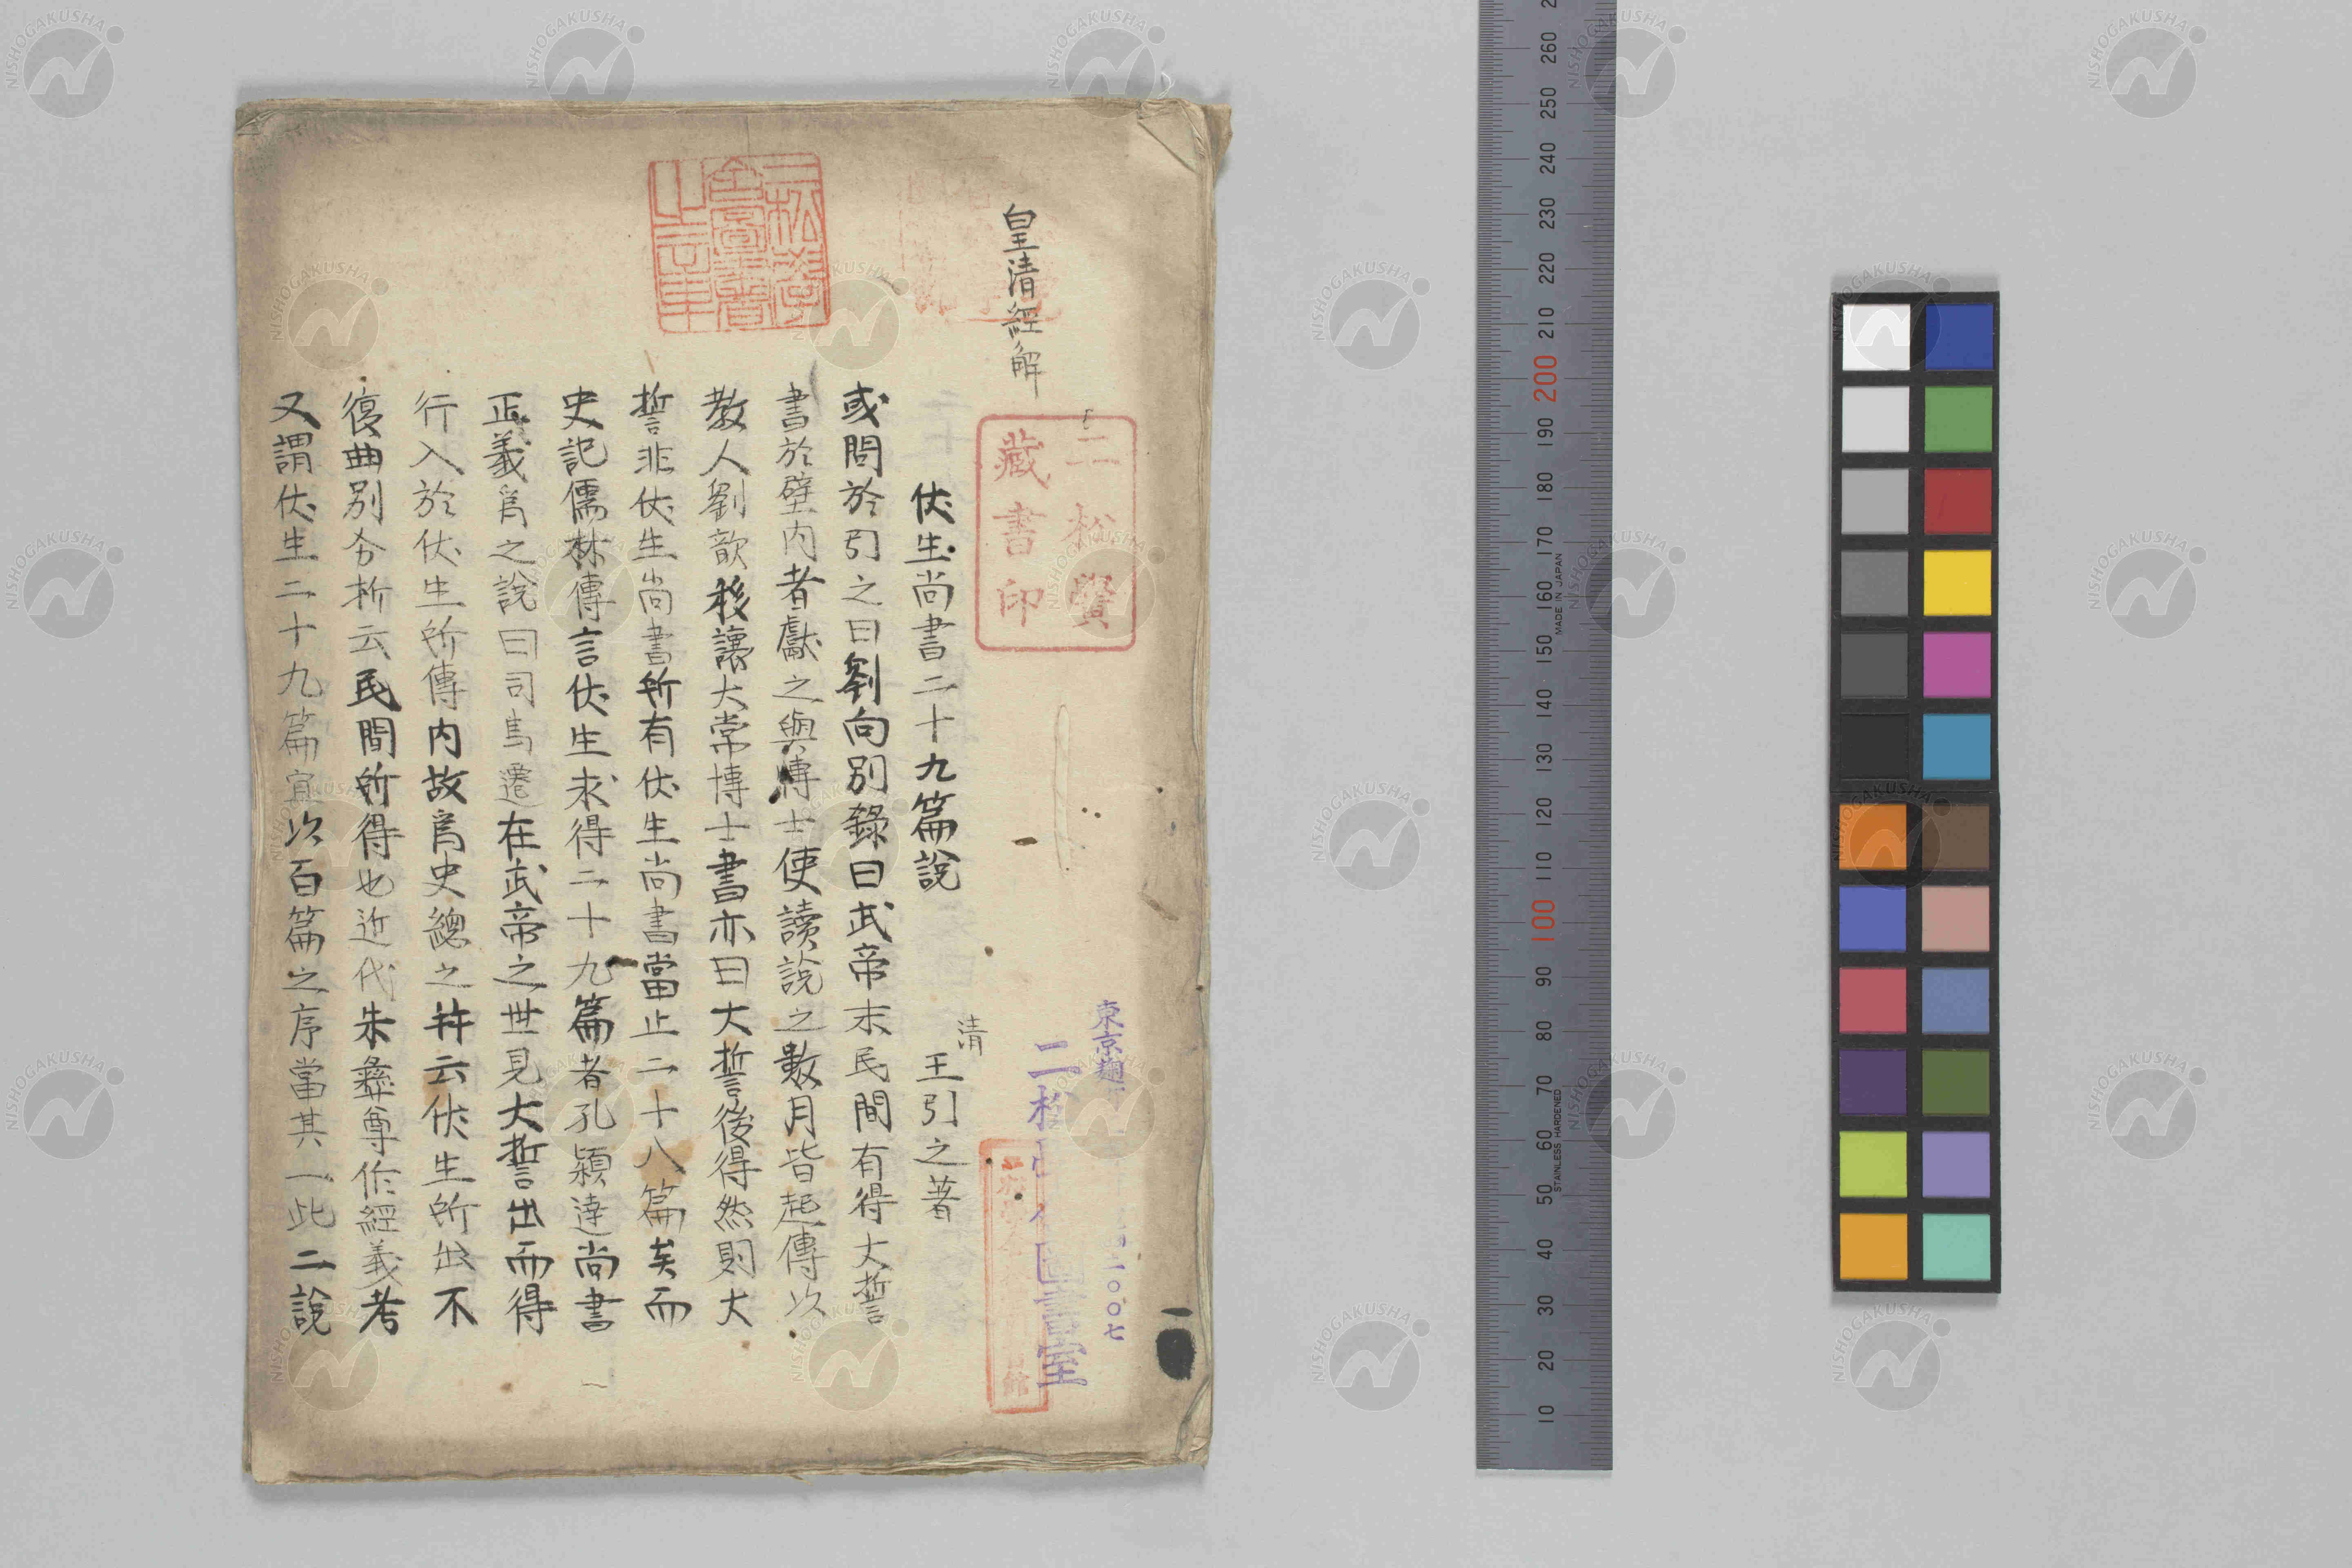 皇清經解
二松學
藏書印
伏生尚書二十九篇說
清
王引之著
或問於引之曰劉向別錄曰武帝末民間有得大誓
書於壁內者獻之與博士使讀說之數月皆起傳以
教人劉歆移讓大常博士書亦曰大誓後得然則大
誓非伏生尚書所有伏生尚書當止二十八篇矣而
史記儒林傳言伏生求得二十九篇者孔穎達尚書
正義爲之說曰司馬遷在武帝之世見大誓出而得
行入於伏生所傳內故爲史總之并云伏生所出不
復曲別分析云民間所得也近代朱彝尊作經義考
又謂伏生二十九篇宜以百篇之序當其一此二說
東京麴
二松
書室
二〇〇七
NISHOGAKUSHA
10
20
30
40
50
60
70
80
90
100
110
120
130
140
150
160
170
180
190
200
210
220
230
240
250
260
MADE IN JAPAN
STAINLESS HARDENED